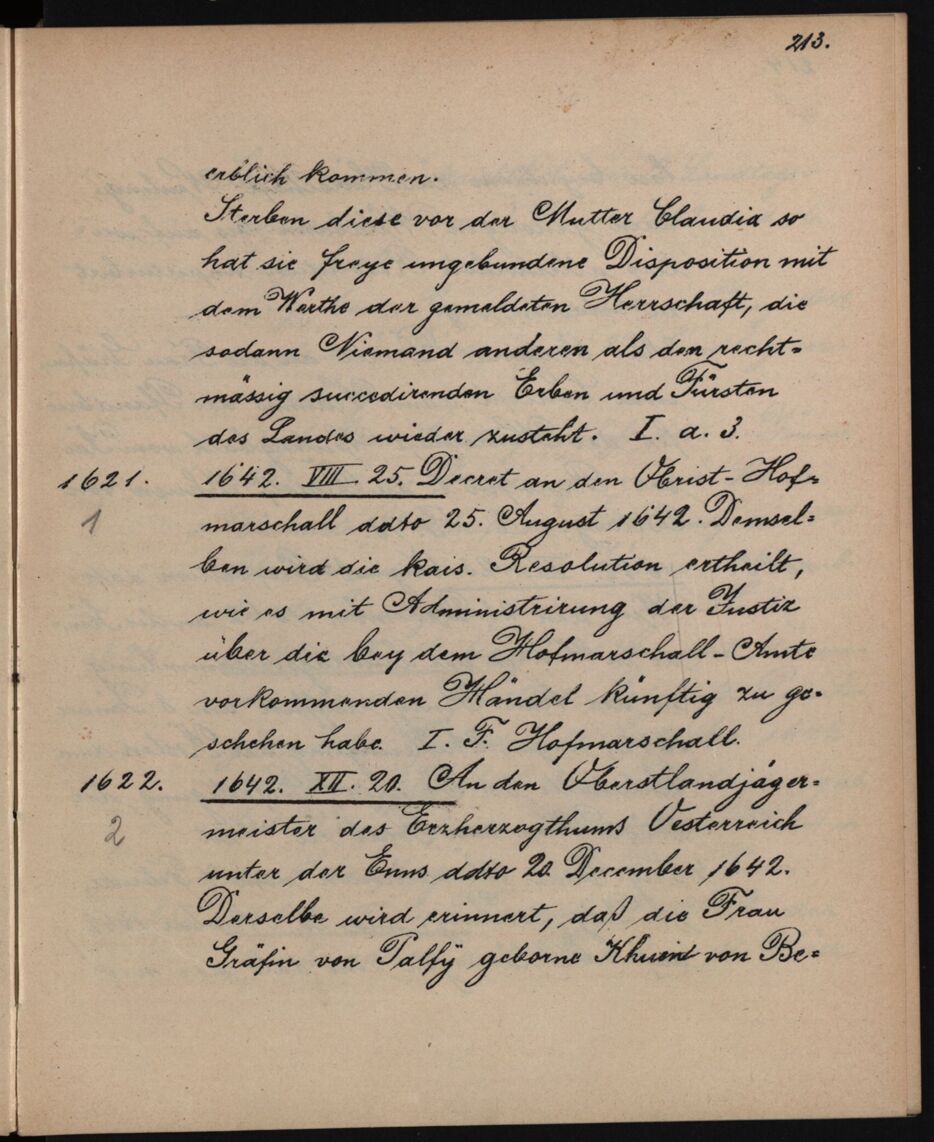 213.
erblich kommen.
Sterben diese vor der Mutter Claudia so
hat sie freye ungebundene Disposition mit
dem Werthe der gemeldeten Herrschaft, die
sodann Niemand anderen als den recht=
mässig succedirenden Erben und Fürsten
des Landes wieder zusteht. I. a. 3.
1621. 1642. VIII. 25. Decret an den Obrist-Hof=
1 marschall ddto 25. August 1642. Demsel=
ben wird die kais. Resolution ertheilt,
wie es mit Administrirung der Justiz
über die bey dem Hofmarschall-Amte
vorkommenden Händel künftig zu ge=
schehen habe. I. F. Hofmarschall.
1622. 1642. XII. 20. An den Oberstlandjäger=
2 meister des Erzherzogthums Oesterreich
unter der Enns ddto 20. December 1642.
Derselbe wird erinnert, daß die Frau
Gräfin von Palfÿ geborne Khuen von Be=